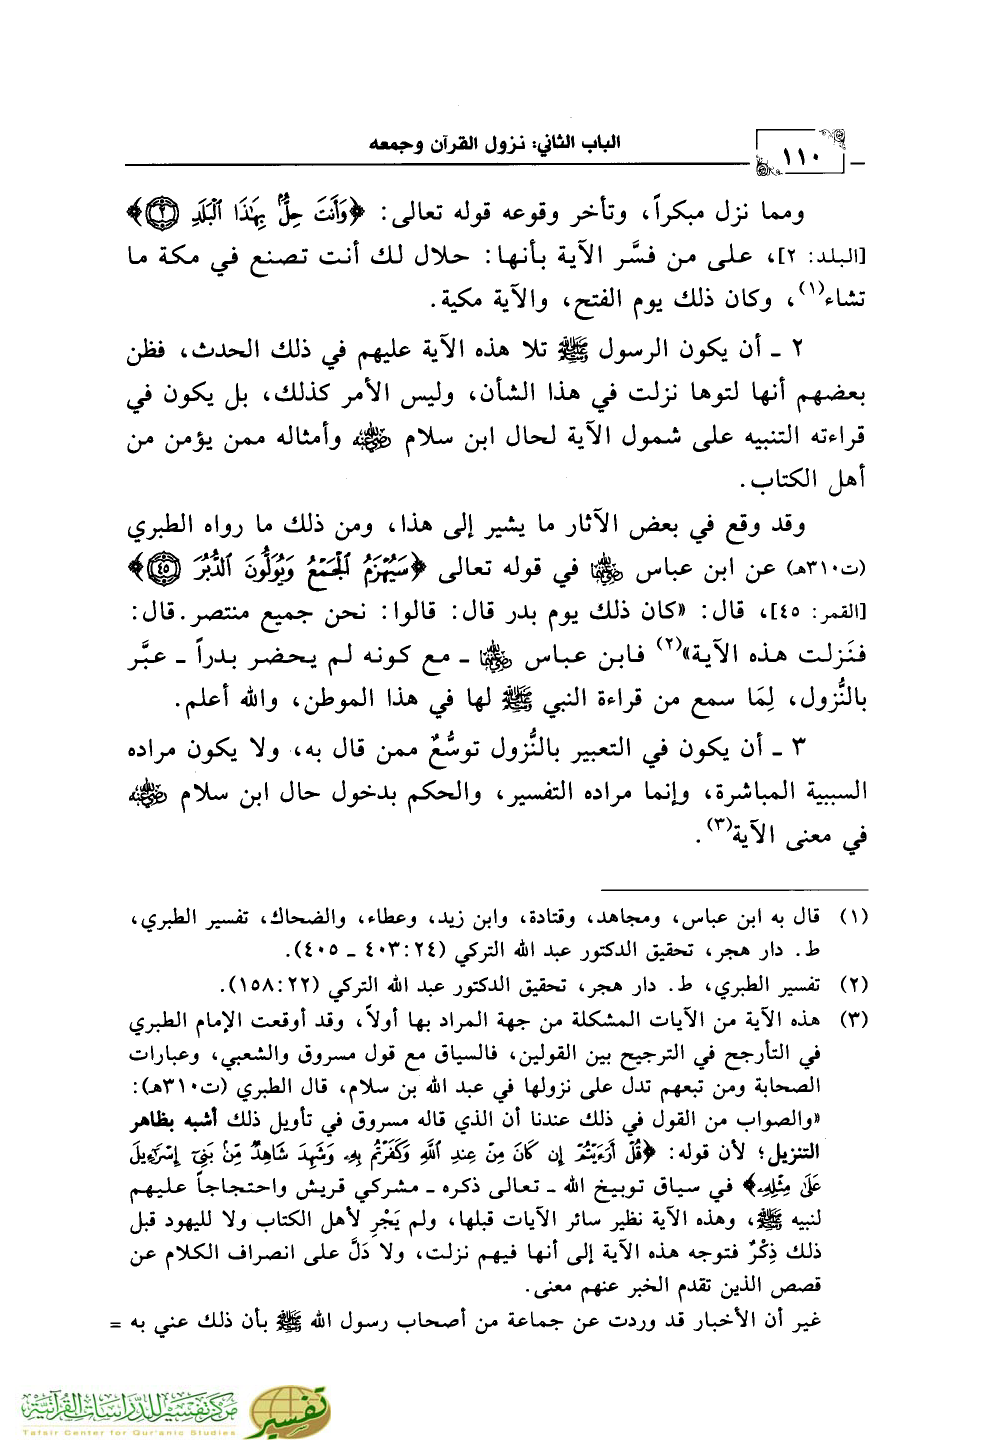 الباب الثاني: نزول القرآن وجمعه
١١٠
ومما نزل مبكراً، وتأخر وقوعه قوله تعالى: ﴿وَأَنتَ حِلٌّۢ بِهَٰذَا ٱلْبَلَدِ ۝٢﴾
[البلد: ٢]، على من فسَّر الآية بأنها: حلال لك أنت تصنع في مكة ما
تشاء(١)، وكان ذلك يوم الفتح، والآية مكية.
٢ ـ أن يكون الرسول ﷺ تلا هذه الآية عليهم في ذلك الحدث، فظن
بعضهم أنها لتوها نزلت في هذا الشأن، وليس الأمر كذلك، بل يكون في
قراءته التنبيه على شمول الآية لحال ابن سلام رضي الله عنه وأمثاله ممن يؤمن من
أهل الكتاب.
وقد وقع في بعض الآثار ما يشير إلى هذا، ومن ذلك ما رواه الطبري
(ت٣١٠هـ) عن ابن عباس رضي الله عنهما في قوله تعالى ﴿سَيُهْزَمُ ٱلْجَمْعُ وَيُوَلُّونَ ٱلدُّبُرَ ۝٤٥﴾
[القمر: ٤٥]، قال: «كان ذلك يوم بدر قال: قالوا: نحن جميع منتصر. قال:
فنَزلت هذه الآية»(٢) فابن عباس رضي الله عنهما ـ مع كونه لم يحضر بدراً ـ عبَّر
بالنُّزول، لِمَا سمع من قراءة النبي ﷺ لها في هذا الموطن، والله أعلم.
٣ ـ أن يكون في التعبير بالنُّزول توسُّعٌ ممن قال به، ولا يكون مراده
السببية المباشرة، وإنما مراده التفسير، والحكم بدخول حال ابن سلام رضي الله عنه
في معنى الآية(٣).
(١) قال به ابن عباس، ومجاهد، وقتادة، وابن زيد، وعطاء، والضحاك، تفسير الطبري،
ط. دار هجر، تحقيق الدكتور عبد الله التركي (٢٤: ٤٠٣ ـ ٤٠٥).
(٢) تفسير الطبري، ط. دار هجر، تحقيق الدكتور عبد الله التركي (٢٢: ١٥٨).
(٣) هذه الآية من الآيات المشكلة من جهة المراد بها أولاً، وقد أوقعت الإمام الطبري
في التأرجح في الترجيح بين القولين، فالسياق مع قول مسروق والشعبي، وعبارات
الصحابة ومن تبعهم تدل على نزولها في عبد الله بن سلام، قال الطبري (ت٣١٠هـ):
«والصواب من القول في ذلك عندنا أن الذي قاله مسروق في تأويل ذلك أشبه بظاهر
التنزيل؛ لأن قوله: ﴿قُلْ أَرَءَيْتُمْ إِن كَانَ مِنْ عِندِ ٱللَّهِ وَكَفَرْتُم بِهِۦ وَشَهِدَ شَاهِدٌ مِّنۢ بَنِىٓ إِسْرَٰٓءِيلَ
عَلَىٰ مِثْلِهِۦ﴾ في سياق توبيخ الله ـ تعالى ذكره ـ مشركي قريش واحتجاجاً عليهم
لنبيه ﷺ، وهذه الآية نظير سائر الآيات قبلها، ولم يَجْرِ لأهل الكتاب ولا لليهود قبل
ذلك ذِكْرٌ فتوجه هذه الآية إلى أنها فيهم نزلت، ولا دَلَّ على انصراف الكلام عن
قصص الذين تقدم الخبر عنهم معنى.
غير أن الأخبار قد وردت عن جماعة من أصحاب رسول الله ﷺ بأن ذلك عني به =
مركز تفسير للدراسات القرآنية
Tafsir Center for Qur'anic Studies
تفسير